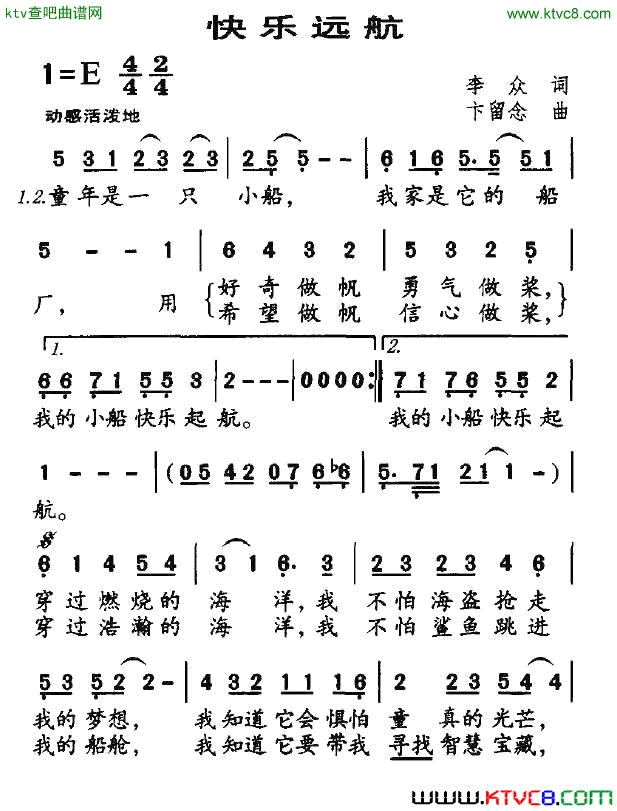 ktv查吧曲谱网
www.ktvc8.com
快乐远航
1=E 4/4 2/4
李众 词
动感活泼地
卞留念 曲
5 31 23 23 | 25 5 - - | 6 16 5. 5 51 |
1.2.童年是一只 小船, 我家是它的船
5 - - 1 | 6 4 3 2 | 5 3 2 5 |
厂, 用 {好奇做帆 勇气做桨,}
{希望做帆 信心做桨,}
1. 2.
66 71 55 3 | 2 - - - | 0 0 0 0 :| 71 76 55 2 |
我的小船快乐起航。 我的小船快乐起
1 - - - | (05 42 07 6♭6 | 5. 71 21 1 -) |
航。
6 1 4 54 | 3 1 6. 3 | 23 23 4 6 |
穿过燃烧的 海 洋,我 不怕海盗抢走
穿过浩瀚的 海 洋,我 不怕鲨鱼跳进
53 52 2 - | 4 32 11 16 | 2 2 54 52 |
我的梦想, 我知道它会惧怕 童 真的光芒,
我的船舱, 我知道它要带我 寻找智慧宝藏,
www.KTVC8.COM